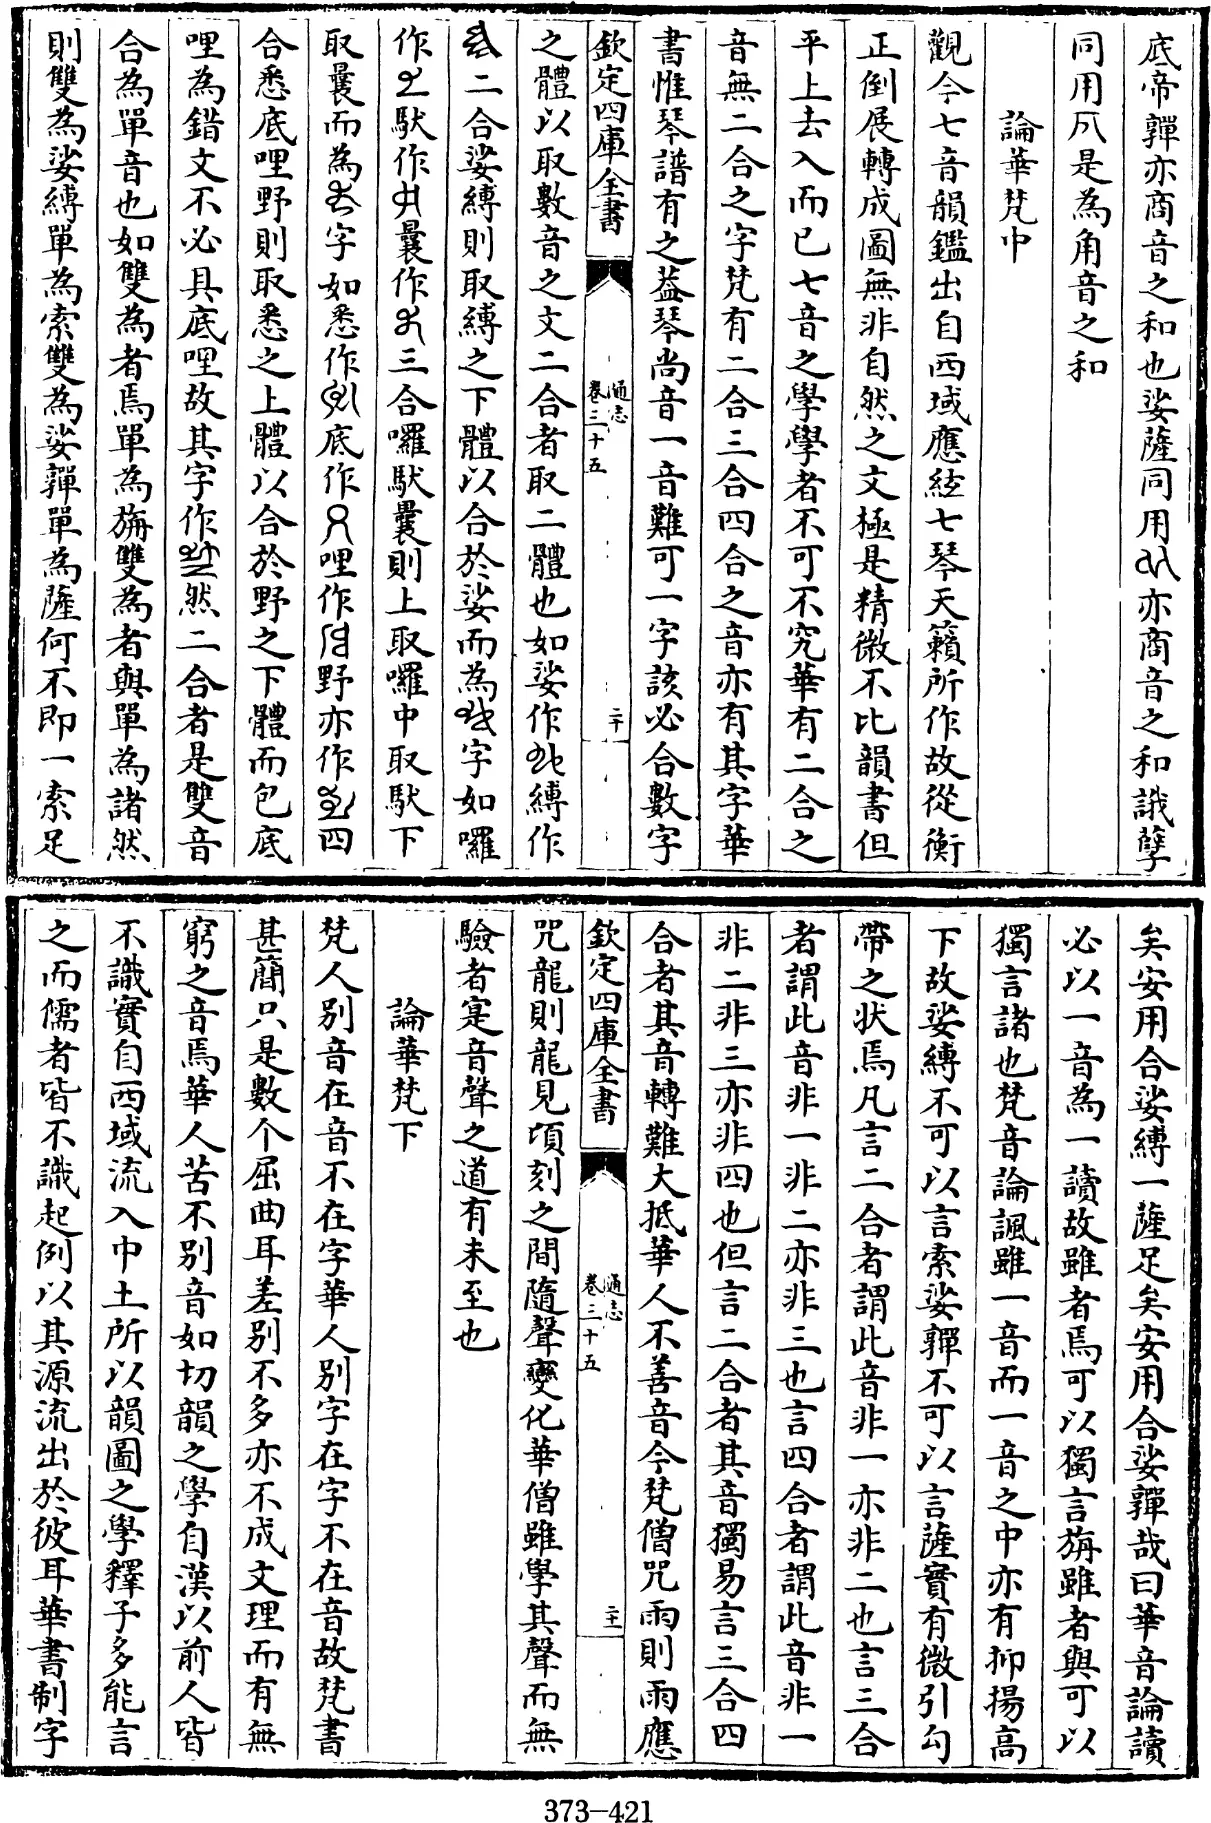 底帝嚲亦商音之和也娑薩同用亦商音之和誐孽
同用是為角音之和
論華梵中
觀今七音韻鑑出自西域應絃七琴天籟所作故從衡
正倒展轉成圖無非自然之文極是精微不比韻書但
平上去入而已七音之學學者不可不究華有二合之
音無二合之字梵有二合三合四合之音亦有其字華
書惟琴譜有之葢琴尚音一音難可一字該必合數字
欽定四庫全書
通志
卷三十五
二十
之體以取數音之文二合者取二體也如娑作縛作
二合娑縛則取縛之下體以合於娑而為字如囉
作馱作曩作三合囉馱曩則上取囉中取馱下
取曩而為字如悉作底作哩作野亦作四
合悉底哩野則取悉之上體以合於野之下體而包底
哩為錯文不必具底哩故其字作然二合者是雙音
合為單音也如雙為者焉單為旃雙為者與單為諸然
則雙為娑縛單為索雙為娑嚲單為薩何不即一索足
矣安用合娑縛一薩足矣安用合娑嚲哉曰華音論讀
必以一音為一讀故雖者焉可以獨言旃雖者與可以
獨言諸也梵音論諷雖一音而一音之中亦有抑揚高
下故娑縛不可以言索娑嚲不可以言薩實有微引勾
帶之狀焉凡言二合者謂此音非一亦非二也言三合
者謂此音非一非二亦非三也言四合者謂此音非一
非二非三亦非四也但言二合者其音獨易言三合四
合者其音轉難大抵華人不善音今梵僧咒雨則雨應
欽定四庫全書
通志
卷三十五
二十一
咒龍則龍見頃刻之間隨聲變化華僧雖學其聲而無
驗者寔音聲之道有未至也
論華梵下
梵人別音在音不在字華人別字在字不在音故梵書
甚簡只是數个屈曲耳差別不多亦不成文理而有無
窮之音焉華人苦不別音如切韻之學自漢以前人皆
不識實自西域流入中土所以韻圖之學釋子多能言
之而儒者皆不識起例以其源流出於彼耳華書制字
373-421